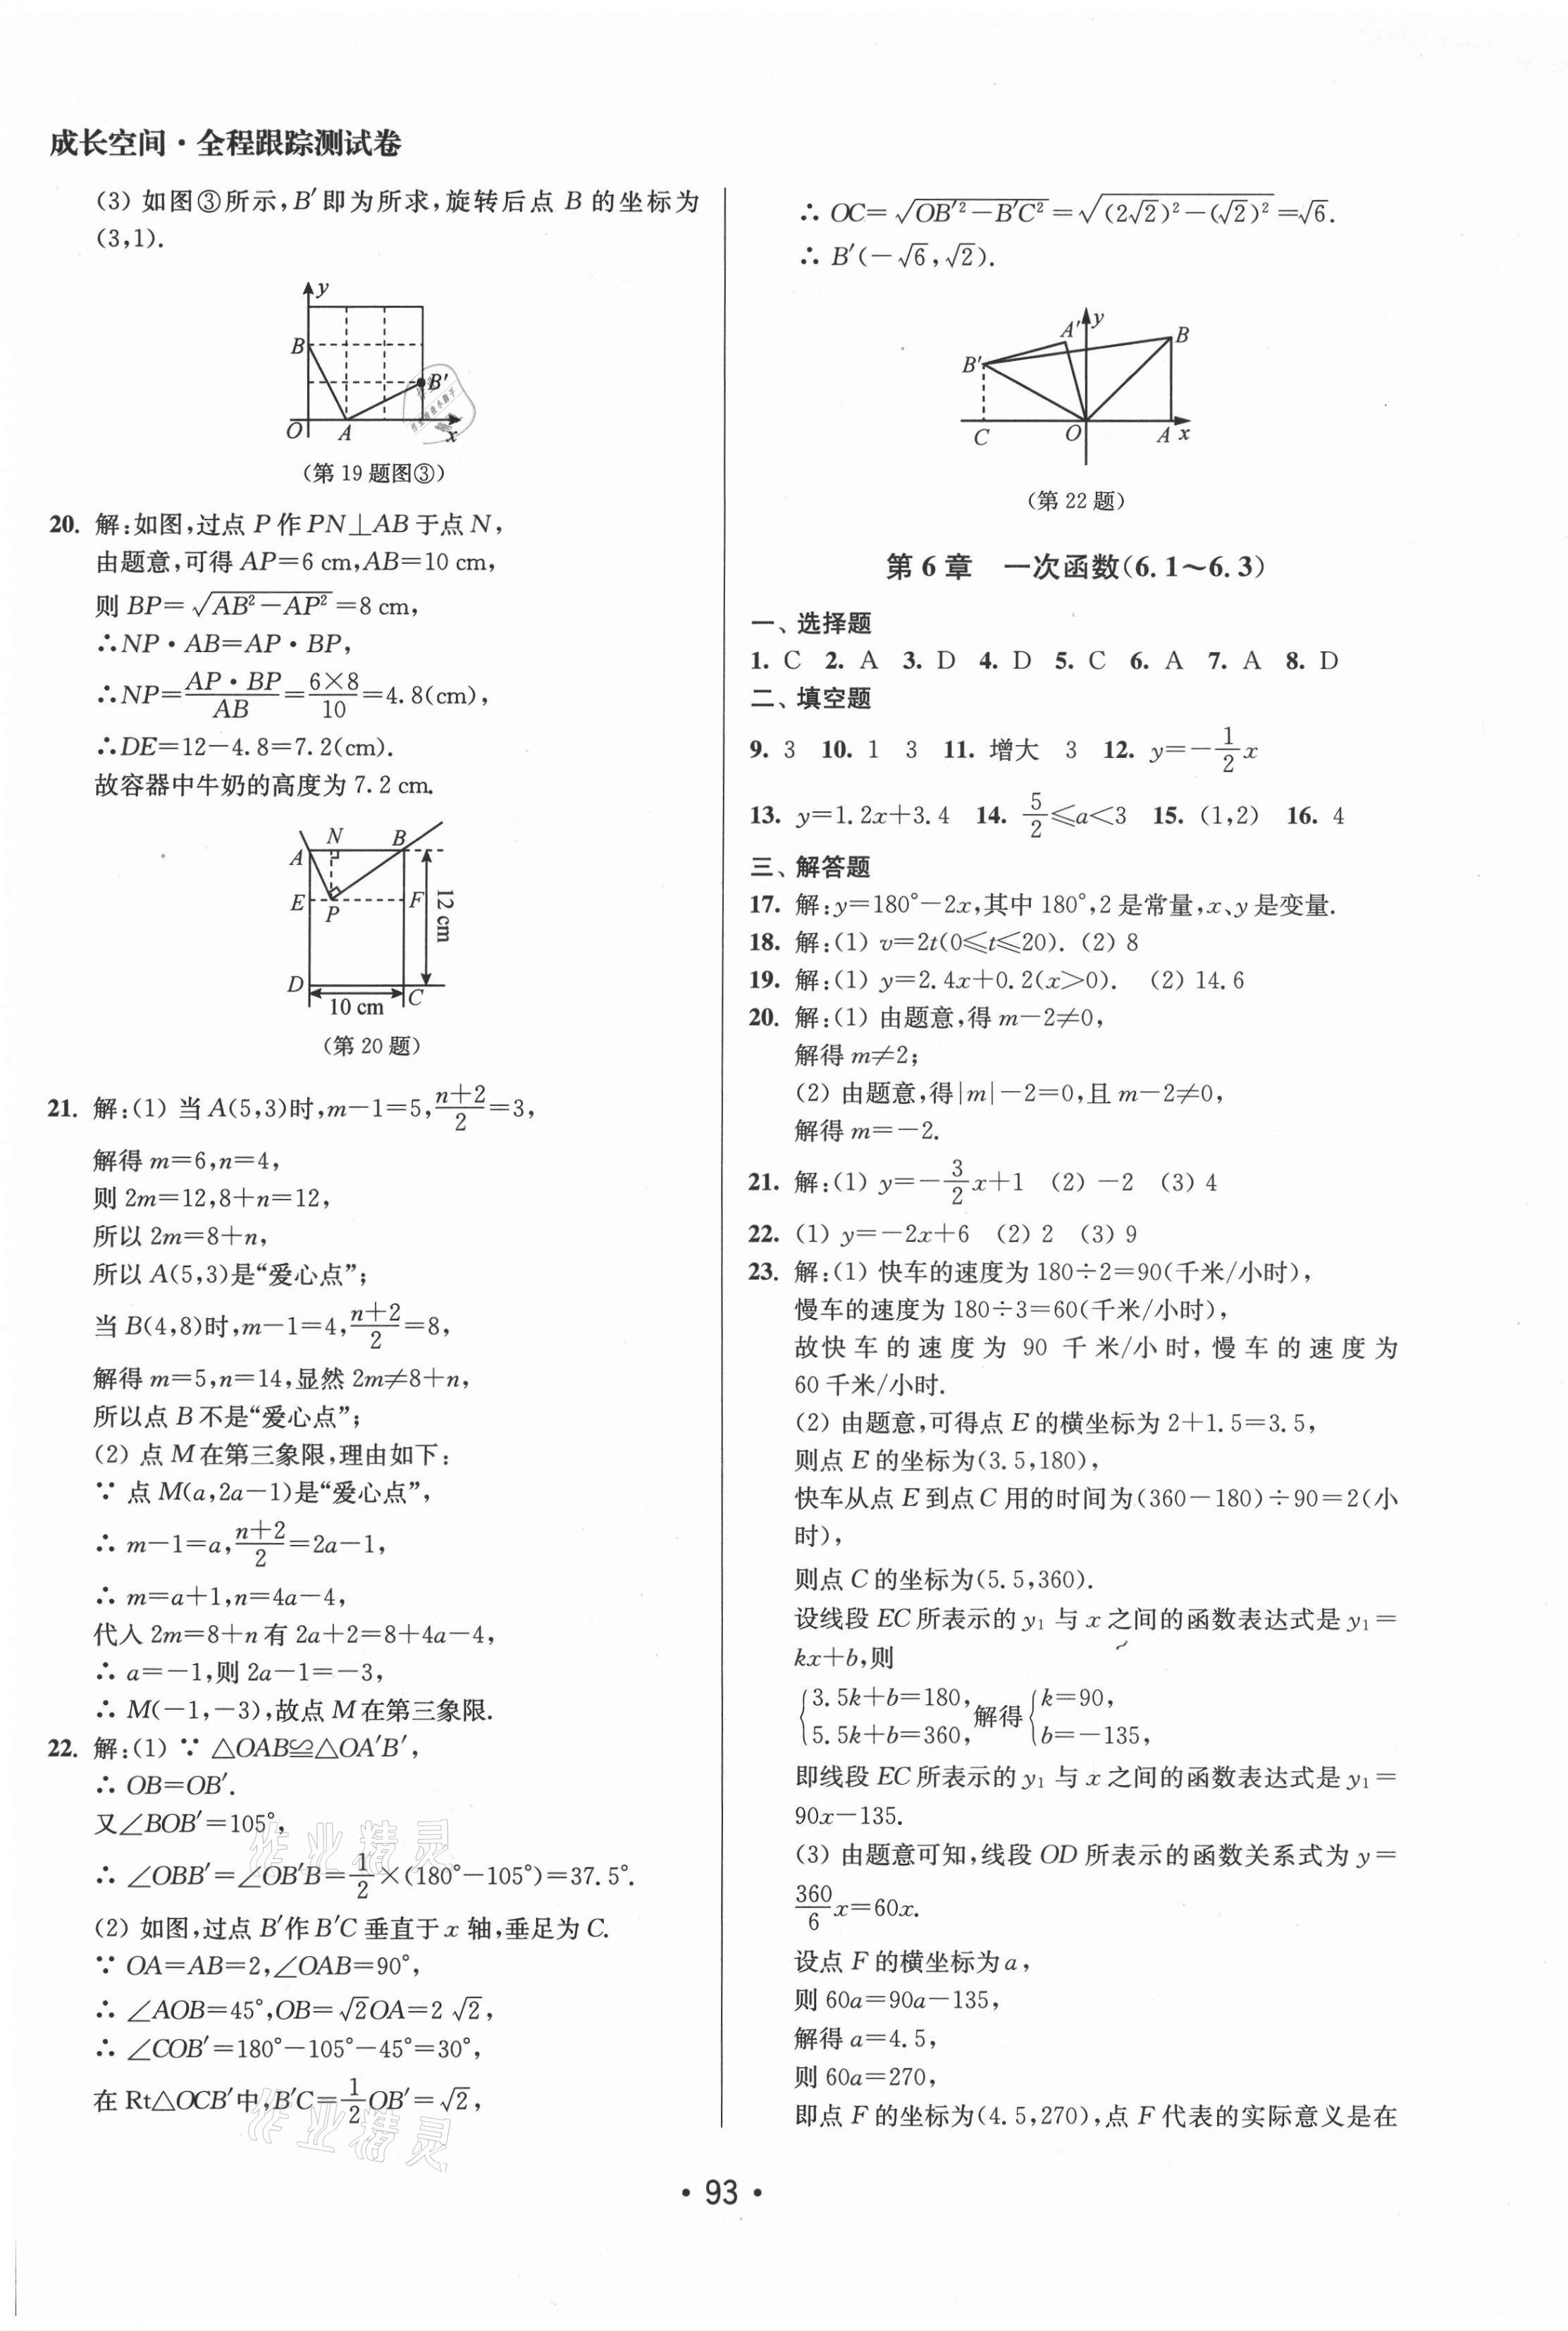 成长空间·全程跟踪测试卷
(3) 如图③所示,B′即为所求,旋转后点 B 的坐标为
(3,1).
y
B
B′
O
A
x
(第 19 题图③)
20. 解:如图,过点 P 作 PN⊥AB 于点 N,
由题意,可得 AP=6 cm,AB=10 cm,
则 BP=√(AB²−AP²)=8 cm,
∴NP·AB=AP·BP,
∴NP=AP·BP/AB=6×8/10=4.8(cm),
∴DE=12−4.8=7.2(cm).
故容器中牛奶的高度为 7.2 cm.
N
B
A
E
P
F
12 cm
D
C
10 cm
(第 20 题)
21. 解:(1) 当 A(5,3)时,m−1=5,(n+2)/2=3,
解得 m=6,n=4,
则 2m=12,8+n=12,
所以 2m=8+n,
所以 A(5,3)是“爱心点”;
当 B(4,8)时,m−1=4,(n+2)/2=8,
解得 m=5,n=14,显然 2m≠8+n,
所以点 B 不是“爱心点”;
(2) 点 M 在第三象限,理由如下:
∵ 点 M(a,2a−1)是“爱心点”,
∴ m−1=a,(n+2)/2=2a−1,
∴ m=a+1,n=4a−4,
代入 2m=8+n 有 2a+2=8+4a−4,
∴ a=−1,则 2a−1=−3,
∴ M(−1,−3),故点 M 在第三象限.
22. 解:(1) ∵ △OAB≌△OA′B′,
∴ OB=OB′.
又∠BOB′=105°,
∴ ∠OBB′=∠OB′B=1/2×(180°−105°)=37.5°.
(2) 如图,过点 B′作 B′C 垂直于 x 轴,垂足为 C.
∵ OA=AB=2,∠OAB=90°,
∴ ∠AOB=45°,OB=√2OA=2√2,
∴ ∠COB′=180°−105°−45°=30°,
在 Rt△OCB′中,B′C=1/2OB′=√2,
∴ OC=√(OB′²−B′C²)=√((2√2)²−(√2)²)=√6.
∴ B′(−√6,√2).
A′
y
B
B′
C
O
A
x
(第 22 题)
第 6 章 一次函数(6.1~6.3)
一、选择题
1. C 2. A 3. D 4. D 5. C 6. A 7. A 8. D
二、填空题
9. 3 10. 1 3 11. 增大 3 12. y=−1/2x
13. y=1.2x+3.4 14. 5/2≤a<3 15. (1,2) 16. 4
三、解答题
17. 解:y=180°−2x,其中 180°,2 是常量,x、y 是变量.
18. 解:(1) v=2t(0≤t≤20). (2) 8
19. 解:(1) y=2.4x+0.2(x>0). (2) 14.6
20. 解:(1) 由题意,得 m−2≠0,
解得 m≠2;
(2) 由题意,得|m|−2=0,且 m−2≠0,
解得 m=−2.
21. 解:(1) y=−3/2x+1 (2) −2 (3) 4
22. (1) y=−2x+6 (2) 2 (3) 9
23. 解:(1) 快车的速度为 180÷2=90(千米/小时),
慢车的速度为 180÷3=60(千米/小时),
故快车的速度为 90 千米/小时,慢车的速度为
60 千米/小时.
(2) 由题意,可得点 E 的横坐标为 2+1.5=3.5,
则点 E 的坐标为(3.5,180),
快车从点 E 到点 C 用的时间为(360−180)÷90=2(小
时),
则点 C 的坐标为(5.5,360).
设线段 EC 所表示的 y₁ 与 x 之间的函数表达式是 y₁=
kx+b,则
{3.5k+b=180, 解得 {k=90,
5.5k+b=360, b=−135,
即线段 EC 所表示的 y₁ 与 x 之间的函数表达式是 y₁=
90x−135.
(3) 由题意可知,线段 OD 所表示的函数关系式为 y=
360/6x=60x.
设点 F 的横坐标为 a,
则 60a=90a−135,
解得 a=4.5,
则 60a=270,
即点 F 的坐标为(4.5,270),点 F 代表的实际意义是在
作业精灵
作业精灵
·93·